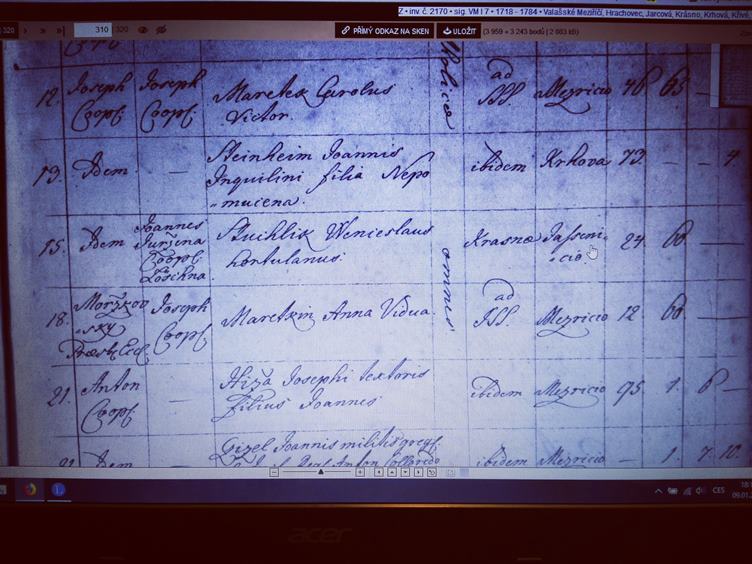 Z • inv. č. 2170 • sig. VM I 7 • 1718 - 1784 • Valašské Meziříčí, Hrachovec, Jarcová, Krásno, Krhová, Křivé,
320 310 / 320 PŘÍMÝ ODKAZ NA SKEN ULOŽIT (3 959 × 3 243 bodů | 2 663 kB)
12. Joseph Coop. Joseph Coop. Maretek Carolus Victor. ad SSS. Mezricio 46 60 —
13. Idem — Steinheim Joannis Inquilini filia Nepomucena. ibidem Krhova 73. — — 4
15. Idem Joannes Jurzena Coop. Loschna Stuchlik Wenceslaus hortulanus. Krasnæ Jasseni-cio. 24 60. —
omnes
18. Morzkovsky Joseph Coop. Maretkin Anna Vidua ad SSS. Mezricio 12 60. —
21. Anton Coop. — Hiža Josephi textoris filius Joannes ibidem Mezricio 95 1. 6 —
Idem Gizel Joannis militis greg. Anton ibidem Mezricio — 1. 7. 10.
acer
CES
09.01.